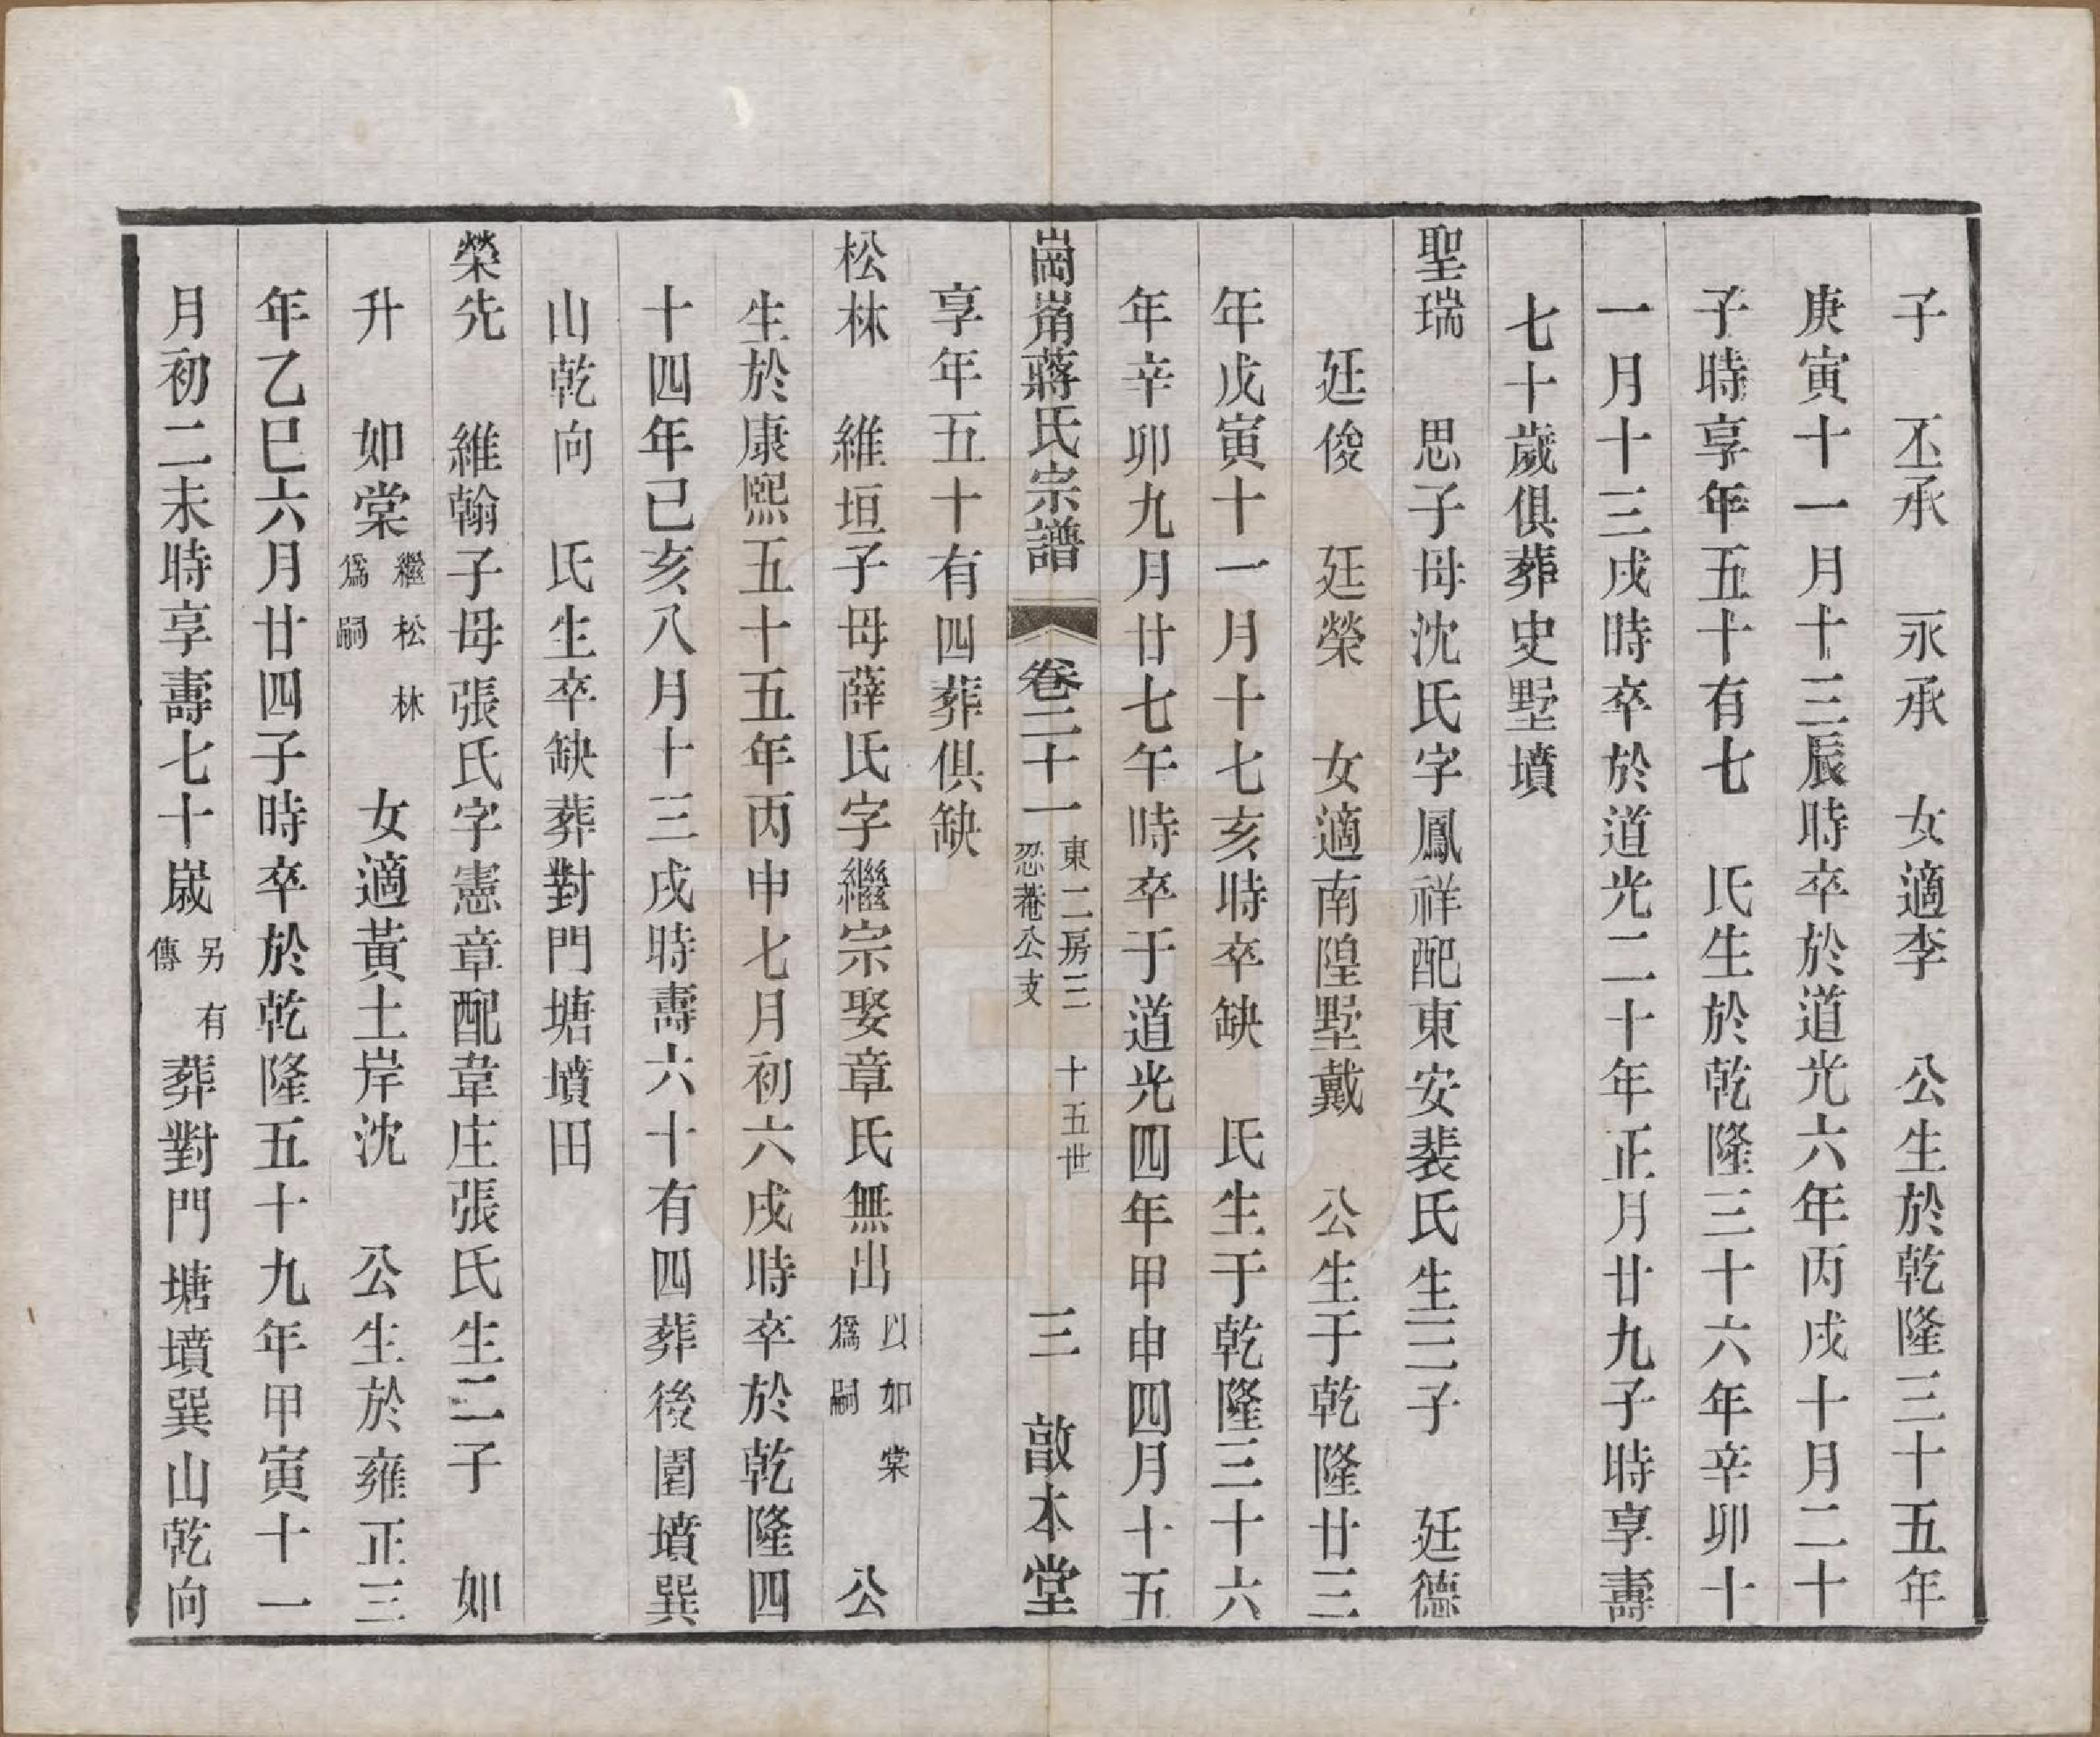 子　丕承　永承　女適李　公生於乾隆三十五年
庚寅十一月十三辰時卒於道光六年丙戌十月二十
子時享年五十有七　氏生於乾隆三十六年辛卯十
一月十三戌時卒於道光二十年正月廿九子時享壽
七十歲俱葬史墅墳
聖瑞　思子母沈氏字鳳祥配東安裴氏生三子　廷德
廷俊　廷榮　女適南隍墅戴　公生于乾隆廿三
年戊寅十一月十七亥時卒缺　氏生于乾隆三十六
年辛卯九月廿七午時卒于道光四年甲申四月十五
崗峟蔣氏宗譜　卷二十一　東二房三忍菴公支　十五世　三　敨本堂
享年五十有四葬俱缺
松林　維垣子母薛氏字繼宗娶章氏無出以如棠爲嗣　公
生於康熙五十五年丙申七月初六戌時卒於乾隆四
十四年己亥八月十三戌時壽六十有四葬後圍墳巽
山乾向　氏生卒缺葬對門塘墳田
榮先　維翰子母張氏字憲章配韋庄張氏生二子　如
升　如棠繼松林爲嗣　女適黃土岸沈　公生於雍正三
年乙巳六月廿四子時卒於乾隆五十九年甲寅十一
月初二未時享壽七十歲另有傳葬對門塘墳巽山乾向